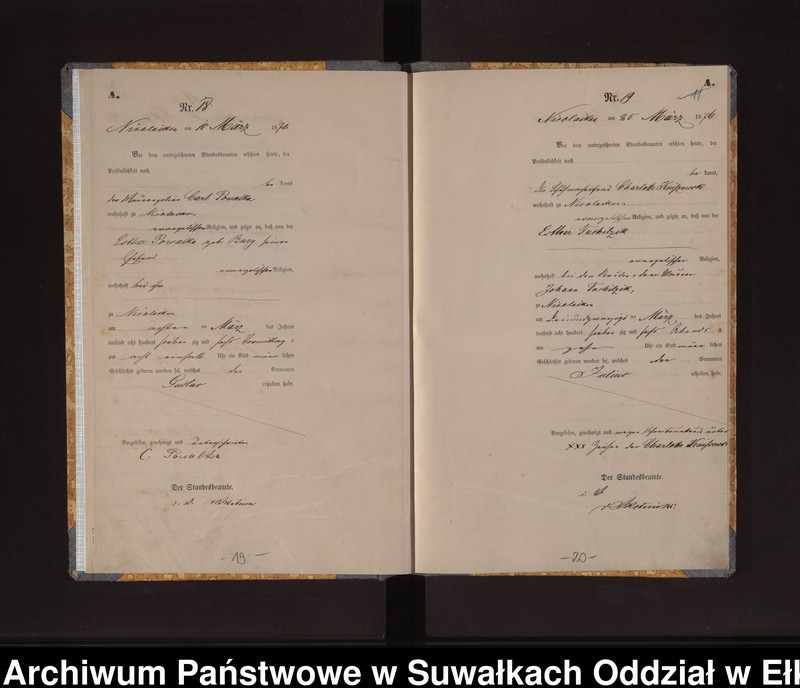 A.
Nr. 18.
Nicolaiken am 10 März 1876
Vor dem unterzeichneten Standesbeamten erschien heute, der
Persönlichkeit nach
be kannt,
der Carl Powalka
wohnhaft zu Nicolaiken
evangelischer Religion, und zeigte an, daß von der
Esther Powalka geb. seiner
Ehefrau
evangelischer Religion,
wohnhaft bei ihm
zu Nicolaiken
am achten ten März des Jahres
tausend acht hundert sieben zig und sechs Vormittags
um acht einhalb Uhr ein Kind männlichen
Geschlechts geboren worden sei, welches den Vornamen
Gustav erhalten habe.
Vorgelesen, genehmigt und unterschrieben
C. Powalka
Der Standesbeamte.
i. V.
-19-
A.
Nr. 19
Nicolaiken am 25 März 1876.
Vor dem unterzeichneten Standesbeamten erschien heute, der
Persönlichkeit nach
be kannt,
die Charlotte
wohnhaft zu Nicolaiken
evangelischer Religion, und zeigte an, daß von der
Esther
evangelischer Religion,
wohnhaft bei dem Bruder dem
Johann
zu Nicolaiken
am ten März des Jahres
tausend acht hundert sieben zig und sechs Abends
um Uhr ein Kind männlichen
Geschlechts geboren worden sei, welches den Vornamen
Julius erhalten habe.
Vorgelesen, genehmigt und wegen
xxx der Charlotte
Der Standesbeamte.
i. V.
-20-
Archiwum Państwowe w Suwałkach Oddział w Ełk